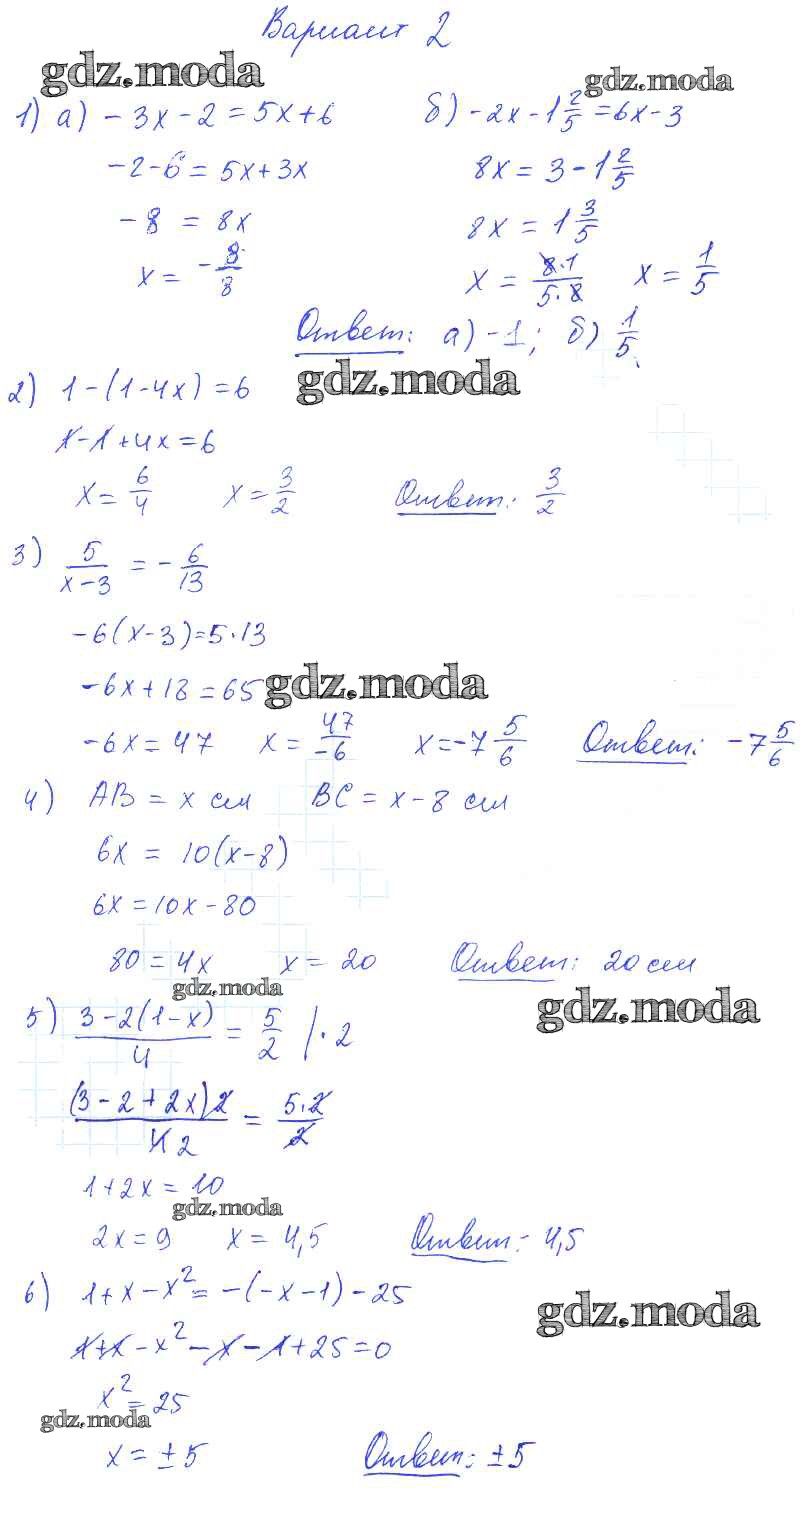 Вариант 2
gdz.moda gdz.moda
1) а) -3x-2=5x+6 б) -2x-1 2/5=6x-3
-2-6=5x+3x 8x=3-1 2/5
-8 = 8x 8x = 1 3/5
x = -8/8 x = 8·1/5·8 x = 1/5
Ответ: а) -1; б) 1/5.
2) 1-(1-4x)=6 gdz.moda
1-1+4x=6
x=6/4 x=3/2 Ответ: 3/2
3) 5/(x-3) = -6/13
-6(x-3)=5·13
-6x+18=65 gdz.moda
-6x=47 x=47/-6 x=-7 5/6 Ответ: -7 5/6
4) AB = x см BC = x-8 см
6x = 10(x-8)
6x=10x-80
80=4x x=20 Ответ: 20 см
gdz.moda gdz.moda
5) (3-2(1-x))/4 = 5/2 |·2
(3-2+2x)2/4 2 = 5·2/2
1+2x=10
gdz.moda
2x=9 x=4,5 Ответ: 4,5
6) 1+x-x²=-(-x-1)-25
gdz.moda
1+x-x²-x-1+25=0
x²=25
gdz.moda
x=±5 Ответ: ±5